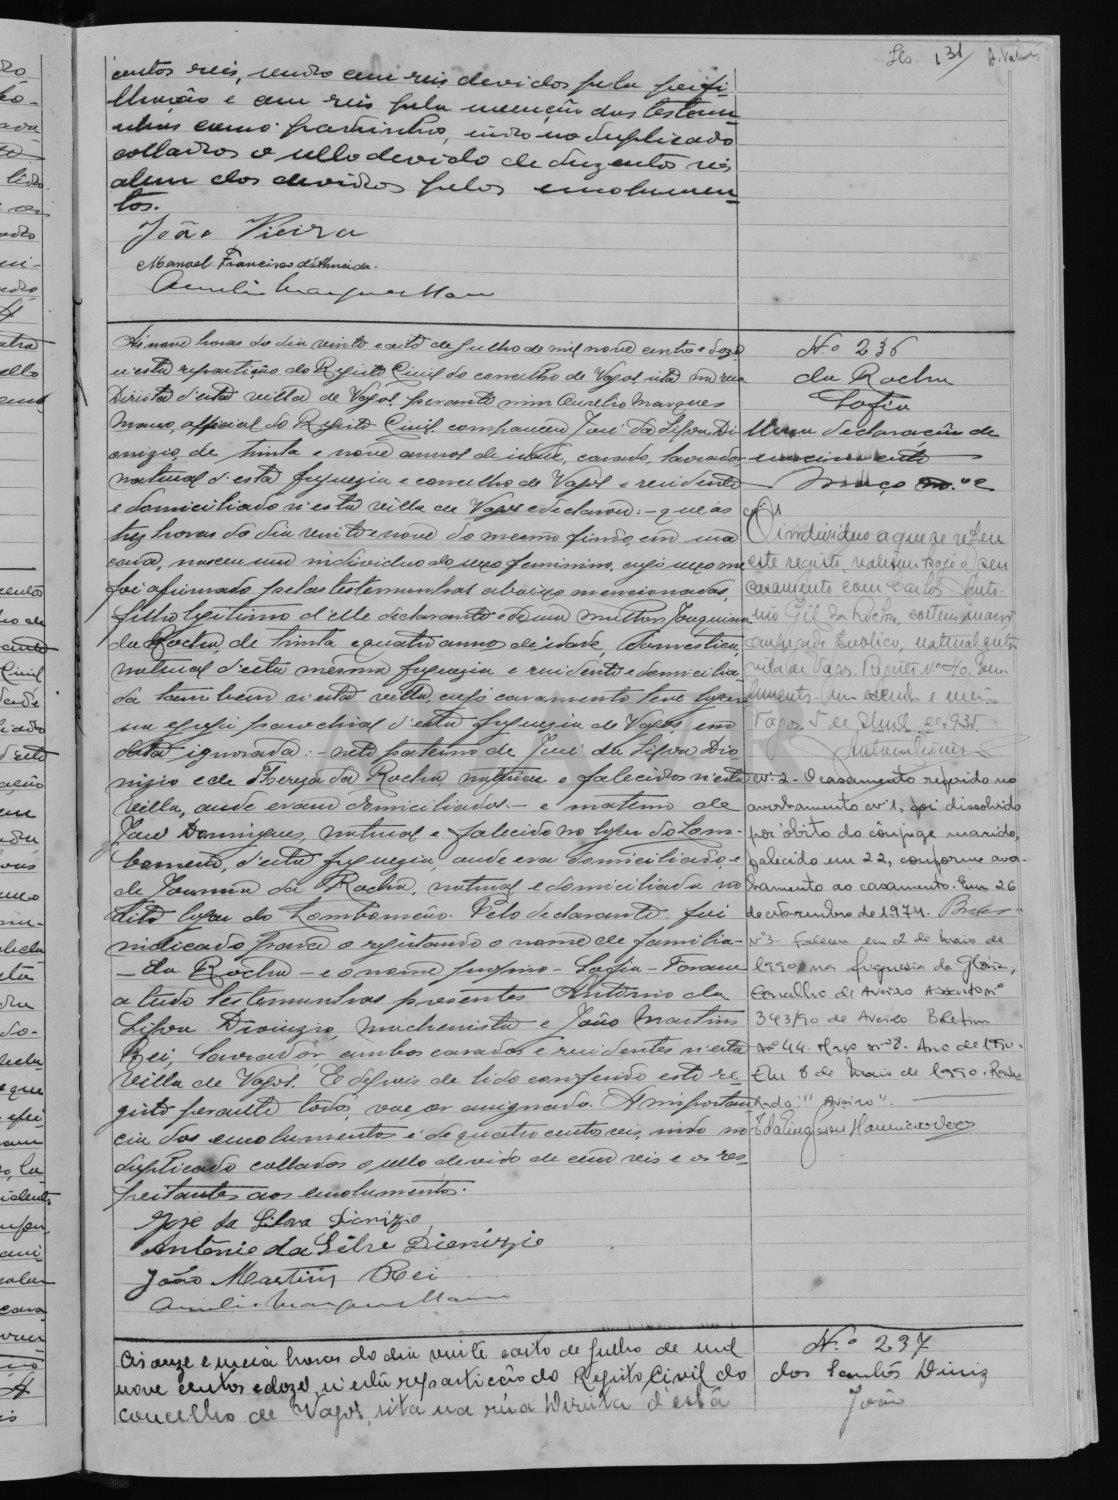 Fls. 131
centos reis, sendo cem reis devidos pela perfi-
lhação e cem reis pela menção das testemu-
nhas como padrinhos, indo no duplicado
collados o sello devido de duzentos reis
alem dos devidos pelos emolumen-
tos.
João Vieira
Manoel Francisco d'Almeida.
Aurelio Marques Mano
Ás nove horas do dia vinte e oito de Julho de mil nove centos e doze
n'esta repartição do Registo Civil do concelho de Vagos, sita na rua
Direita d'esta villa de Vagos, perante mim Aurelio Marques
Mano, official do Registo Civil, compareceu José da Silva Di-
onizio, de trinta e nove annos de idade, casado, lavrador
natural d'esta freguezia e concelho de Vagos e residente
e domiciliado n'esta villa de Vagos e declarou: - que ás
trez horas do dia vinte e nove do mesmo findo, em sua
casa, nasceu um individuo do sexo feminino, cujo sexo me
foi afirmado pelas testemunhas abaixo mencionadas,
filho legitimo d'elle declarante e de sua mulher Joaquina
da Rocha, de trinta e quatro annos de idade, domestica,
natural d'esta mesma freguezia e residente e domicilia-
da tambem n'esta villa, cujo casamento teve lugar
na egreja parochial d'esta freguezia de Vagos em
data ignorada: - neto paterno de José da Silva Dio-
nizio e de Thereza da Rocha, naturaes e falecidos n'esta
villa, onde eram domiciliados - e materno de
José Domingues, natural e falecido no lugar do Lom-
bomeão, d'esta freguezia, onde era domiciliado, e
de Joanna da Rocha, natural e domiciliada no
dito lugar do Lombomeão. Pelo declarante foi
indicado para o registando o nome de familia -
- da Rocha - e o nome proprio - Sofia - Foram
a tudo testemunhas presentes Antonio da
Silva Dionizio, machenista e João Martins
Rei, lavrador, ambos casados e residentes n'esta
villa de Vagos. E depois de lido e conferido este re-
gisto perante todos, vae ser assignado. A importan-
cia dos emolumentos é de quatro centos reis, indo no
duplicado collados o sello devido de cem reis e os res-
peitantes aos emolumentos.
José da Silva Dionizio
Antonio da Silva Dionizio
João Martins Rei
Aurelio Marques Mano
N.º 236
da Rocha
Sofia
Uma declaração de
nascimento
Maço n.º 2
O individuo a que se refere
este registo, realisou hoje o seu
casamento com Carlos Anto-
nio Gil da Rocha, solteiro, maior
empregado publico, natural desta
vila de Vagos. Registo nº 40. Emo-
lumento um escudo e meio
Vagos, 5 de Abril de 1935
nº 2 - O casamento referido no
averbamento nº 1, foi dissolvido
por óbito do cônjuge marido,
falecido em 22, conforme aver-
bamento ao casamento. Em 26
de Novembro de 1974.
Nº 3 - Faleceu em 2 de Maio de
1990 na freguesia da Glória,
Concelho de Aveiro Assento nº
343/90 de Aveiro. Boletim
nº 44. Maço nº 8. Ano de 1990.
Em 8 de Maio de 1990. Ressal-
vado: "Aveiro".
Ás onze e meia horas do dia vinte e oito de Julho de mil
nove centos e doze, n'esta repartição do Registo Civil do
concelho de Vagos, sita na rúa Direita d'esta
N.º 237
dos Santos Diniz
João